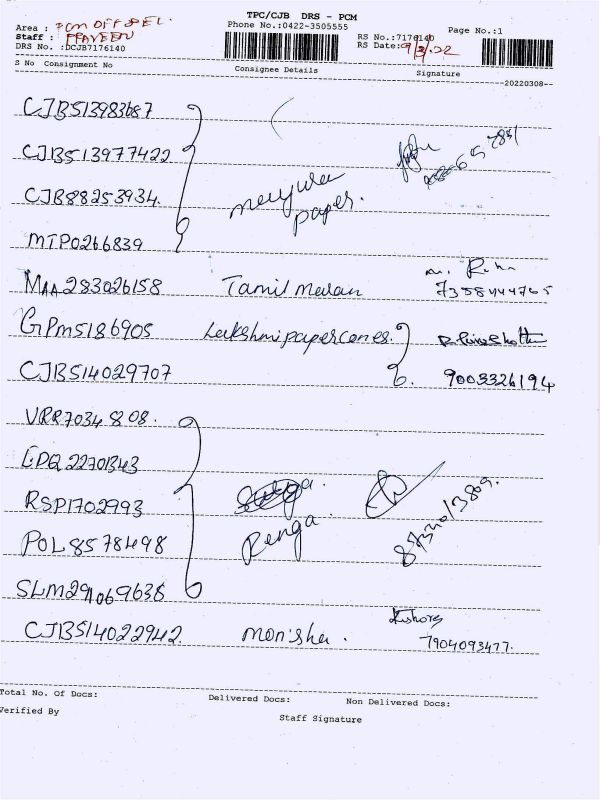 TPC/CJB DRS - PCM
Area : PCM OFF DEL. Phone No.:0422-3505555
Staff : PRAVEEN RS No.:7176140 Page No.:1
DRS No. :DCJB7176140 RS Date:9/3/22
S No Consignment No Consignee Details Signature
--20220308--
CJB513983687
CJB513977422
CJB88253934. mayura paper.
MTP0266839
MAA283026158 Tamil maran 7358444765
GPM5186905 Lakshmi paper cones.
CJB514029707 9003326194
VRR70348208.
RSP1702993 Renga.
POL8578498
CJB514022942. monisha. Kishore
7904093477.
Total No. Of Docs: Delivered Docs: Non Delivered Docs:
Verified By Staff Signature